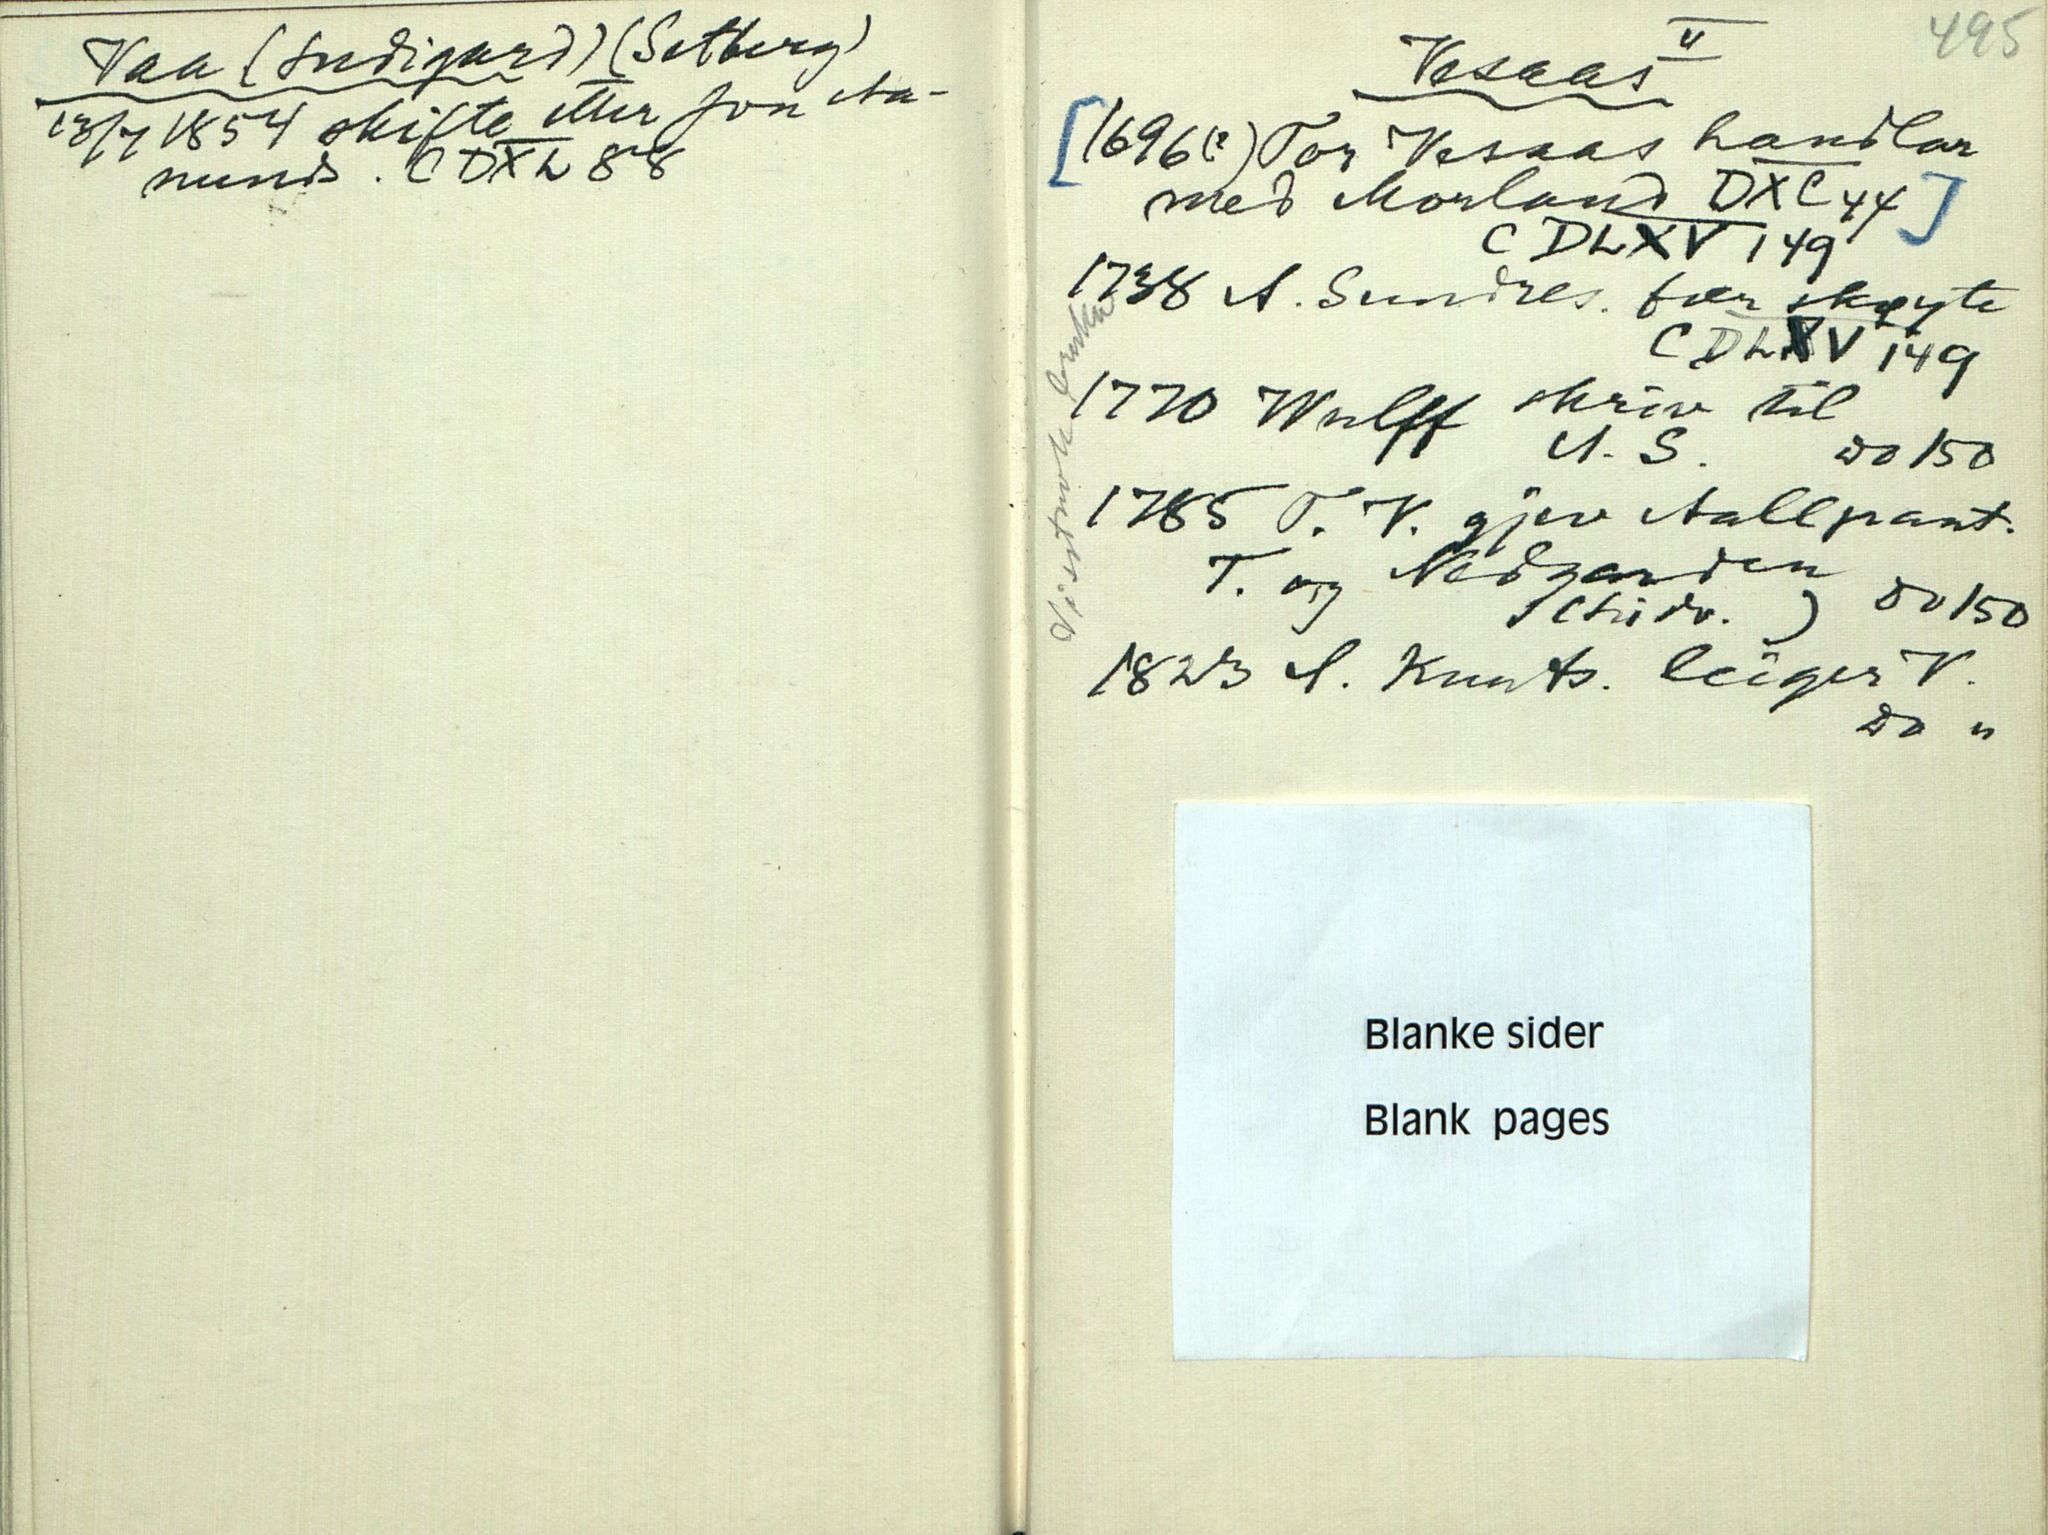 Vaa (Sudigard) (Setberg)
13/7 1854 skifte etter Jon Aa-
nunds. CDXL 88
495
Vesaas II
[1696(?) Tor Vesaas handlar
med Morland DXC 44]
CDLXV 149
1738 A. Sundres. fær skøyte
CDLXV 149
1770 Wulff skriv til
A. S. do 150
1785 T. V. gjev Aall pant.
T. og Nedgarden
do 150
1823 S. Knuts. leiger V.
do "
Blanke sider
Blank pages